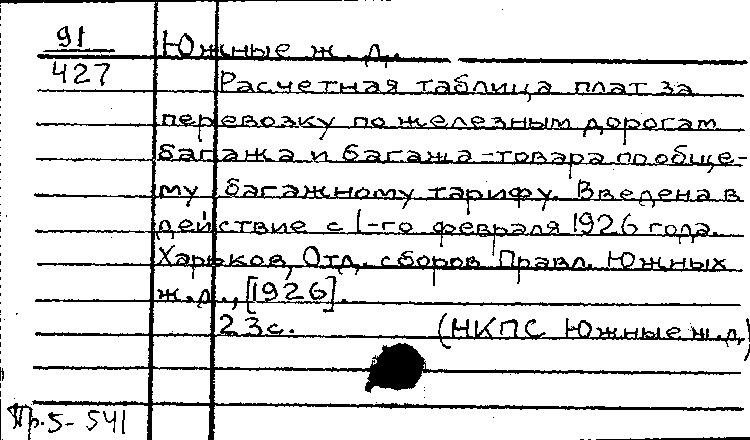 91
427
Южные ж. д.
Расчетная таблица плат за
перевозку по железным дорогам
багажа и багажа-товара по обще-
му багажному тарифу. Введена в
действие с 1-го февраля 1926 года.
Харьков, Отд. сборов Правл. Южных
ж.д., [1926].
23с. (НКПС Южные ж.д.)
Пр.5-541